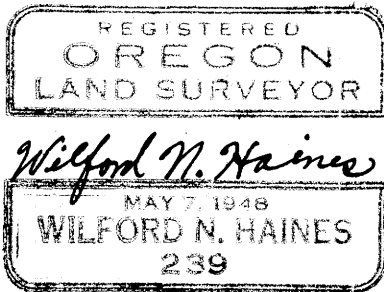 REGISTERED
OREGON
LAND SURVEYOR
Wilford N. Haines
MAY 7, 1948
WILFORD N. HAINES
239